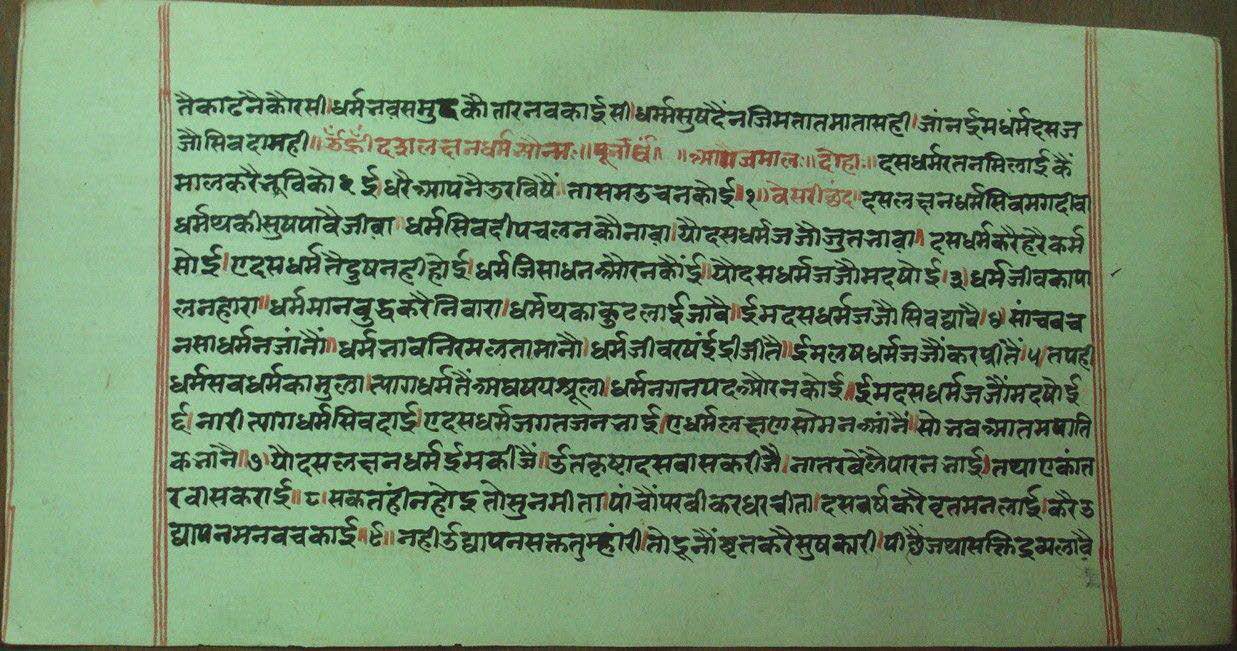 तैकाटनैकौरसी। धर्मनवसमुद्रकौतारनवकाईसी। धर्म्मसुषदैंनजिमतातमातासही। जांनईमधर्मदसज
जौसिवदामही॥ ॐह्रींदशलक्षनधर्मायनमः॥ पूर्नार्घं॥ ॥अथजैमालः॥ दोहा॥ दसधर्मरतनमिलाईकैं
मालकरैनुविकोई। धरैआपनैउरविषैं तासमउचनकोई॥१॥ वेसरीछंद॥ दसलक्षनधर्मसिवमगदीवा
धर्मथकीसुषपावैजीवा॥ धर्मसिवदीपचलनकौनावा। यौदसधर्मजजौजुतनावा। दसधर्मकरैहरैकर्म
सोई। एदसधर्मतैदुषनहीहोई। धर्मजिसाधनऔरनकोंई। यौदसधर्मजजौमदषोई।३। धर्मजीवकापा
लनहारा॥ धर्ममानबुद्धकरैनिवारा। धर्मथकाकुटलाईजावै॥ ईमदसधर्मजजौसिवद्यावै।४। सांचवच
नसाधर्मनजांनौं॥ धर्मनावनिरमलतामानौ। धर्मजीवरषंईद्रीजीतै॥ ईमलषधर्मजजौंकरप्रीतैं।५। तपही
धर्मसबधर्मकामुला। त्यागधर्मतैंअघषयथूला। धर्मनगनपदऔरनकोई। ईमदसधर्मजजौंमदषोई
६। नारीत्यागधर्मसिवदाई। एदसधर्मजगतजननाई। एधर्मलक्षणसोमनआंनैं। सोनवआतमषाति
कनानै।७। यौदसलक्षनधर्मईमकीजैं॥ उतकृष्टादसवासकरीजै। नातरबेलैपारननाई। तथाएकांत
रवासकराई॥८। सकतहींनहोइतोसुनमीता। पांचौंपरवीकरधरचीता। दसवर्षकरैवृतमनलाई। करैउ
द्यापनमनवचकाई॥९॥ नहीउद्यापनसक्ततुम्हांरी। तोदूनौंवृतकरैसुषकारी। पीछैंजथासक्तिद्रव्यलावै